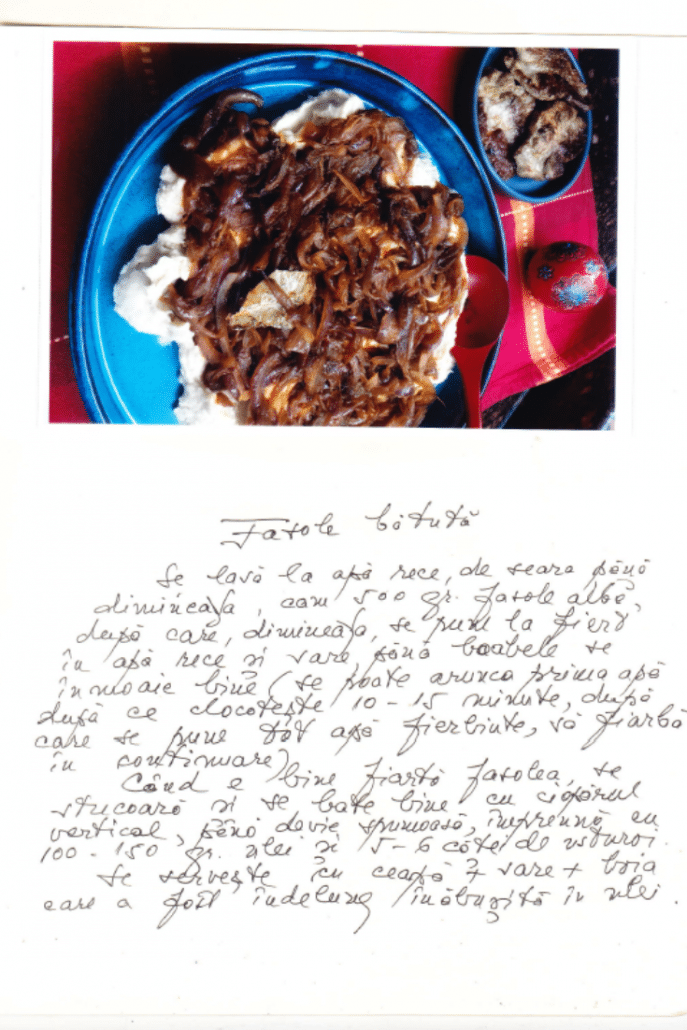 Fasole bătută
Se lasă la apă rece, de seara până
dimineața, cam 500 gr. fasole albă,
după care, dimineața, se pune la fiert
în apă rece și sare, până boabele se
înmoaie bine (se poate arunca prima apă
după ce clocotește 10-15 minute, după
care se pune tot apă fierbinte, să fiarbă
în continuare)
Când e bine fiartă fasolea, se
strecoară și se bate bine cu
vertical, până devine spumoasă, împreună cu
100-150 gr. ulei și 5-6 căței de usturoi.
Se servește cu ceapă + sare + boia
care a fost îndelung înăbușită în ulei.